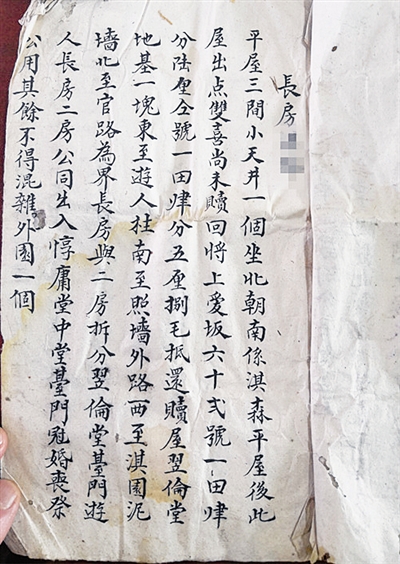 長房
平屋三間小天井一個坐北朝南係淇森平屋後此
屋出点雙喜尚未贖回將上愛坂六十弍號一田肆
分陆厘仝號一田肆分五厘捌毛抵還贖屋翌倫堂
地基一塊東至遊人挂南至照墻外路西至淇園泥
墻北至官路為界長房與二房折分翌倫堂臺門遊
人長房二房公同出入惇庸堂中堂臺門冠婚喪祭
公用其餘不得混雜外園一個